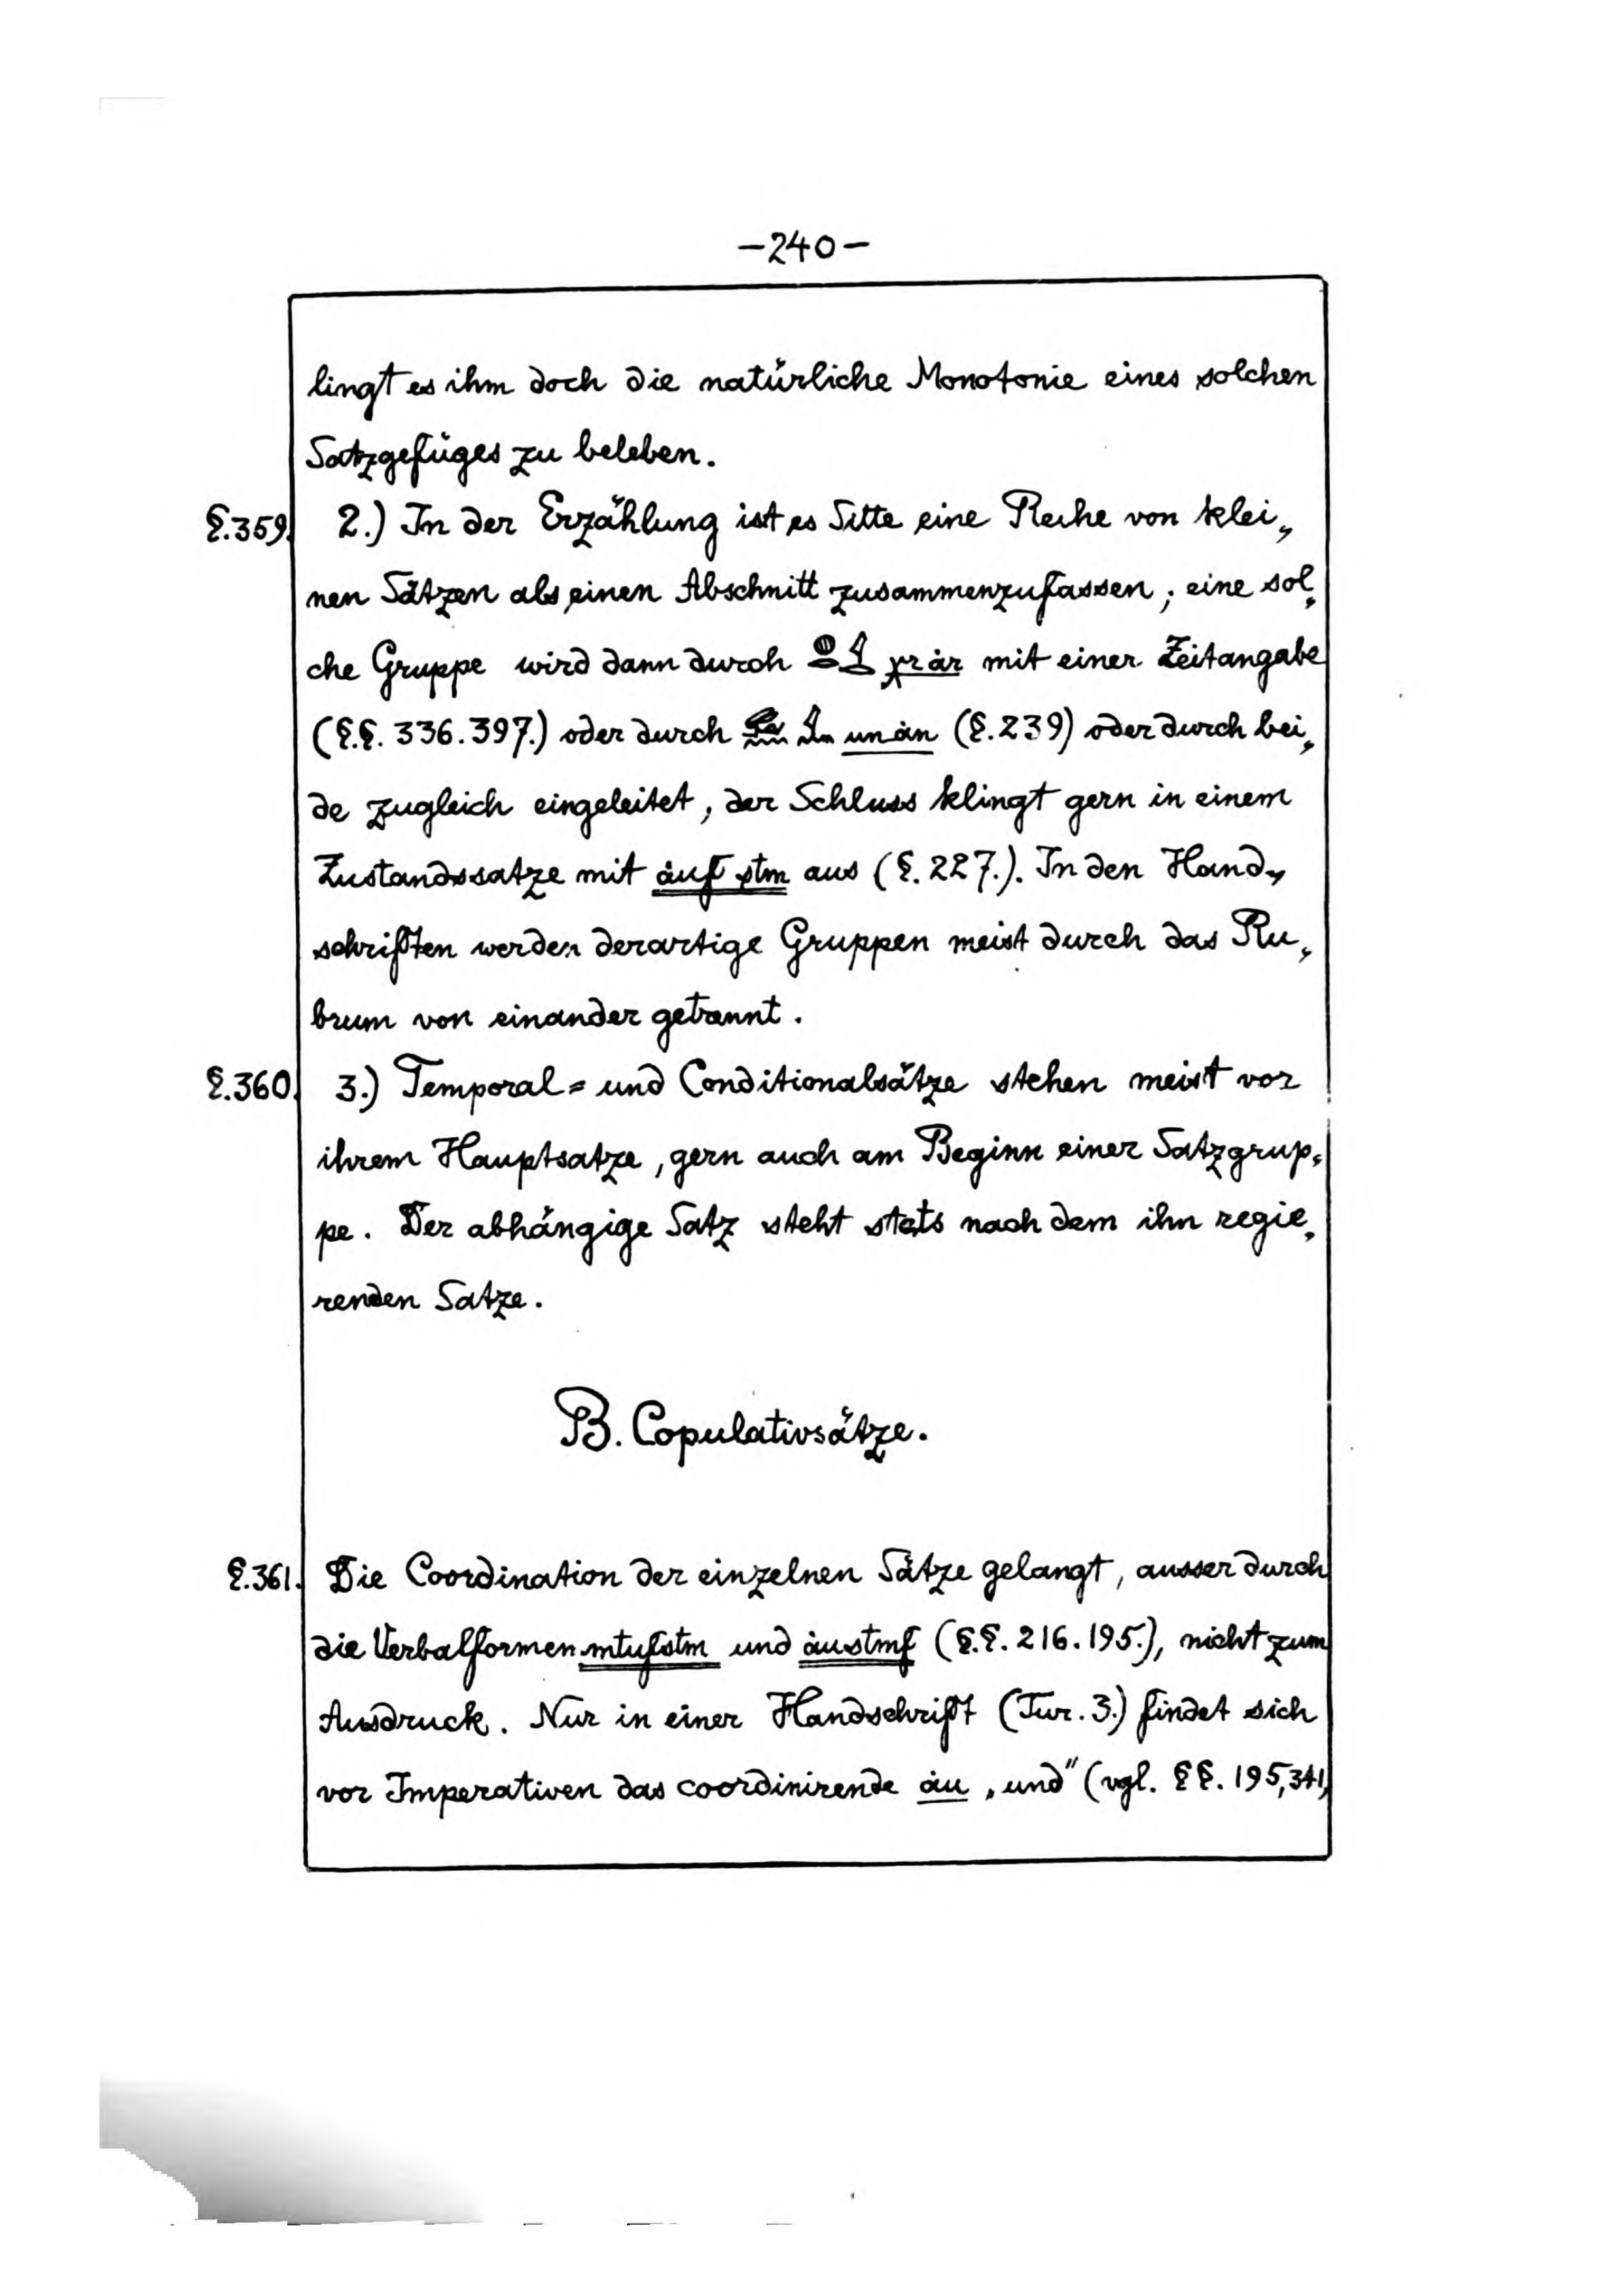 -240-
lingt es ihm doch die natürliche Monotonie eines solchen
Satzgefüges zu beleben.
§.359. 2.) In der Erzählung ist es Sitte eine Reihe von klei„
nen Sätzen als einen Abschnitt zusammenzufassen; eine sol„
che Gruppe wird dann durch χr år mit einer Zeitangabe
(§.§. 336.397.) oder durch un ån (§.239) oder durch bei„
de zugleich eingeleitet, der Schluss klingt gern in einem
Zustandssatze mit åuf stm aus (§.227.). In den Hand„
schriften werden derartige Gruppen meist durch das Ru„
brum von einander getrennt.
§.360. 3.) Temporal= und Conditionalsätze stehen meist vor
ihrem Hauptsatze, gern auch am Beginn einer Satzgrup„
pe. Der abhängige Satz steht stets nach dem ihn regie„
renden Satze.
B. Copulativsätze.
§.361. Die Coordination der einzelnen Sätze gelangt, ausser durch
die Verbalformen mtufstm und åustmf (§.§. 216.195.), nicht zum
Ausdruck. Nur in einer Handschrift (Tur. 3.) findet sich
vor Imperativen das coordinirende åu „und" (vgl. §§. 195,341,